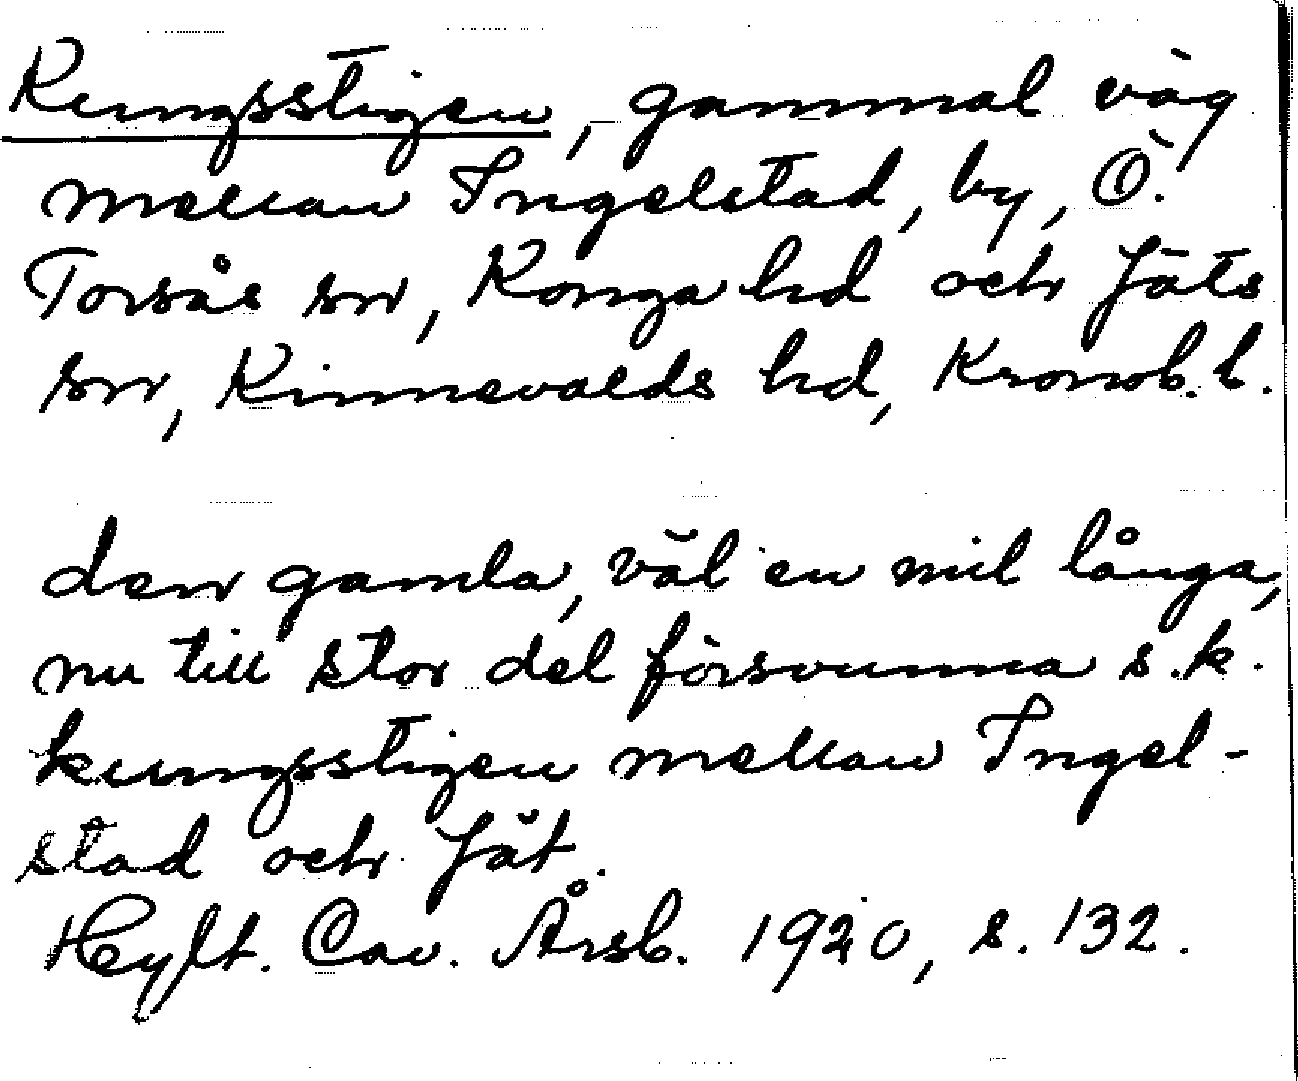 Kungsstigen, gammal väg
mellan Ingelstad, by, Ö.
Torsås sn, Konga hd och Jäts
sn, Kinnevalds hd, Kronob. l.
den gamla, väl en mil långa,
nu till stor del försvunna s.k.
kungsstigen mellan Ingel-
stad och Jät.
Hylt. Cav. Årsb. 1920, s. 132.